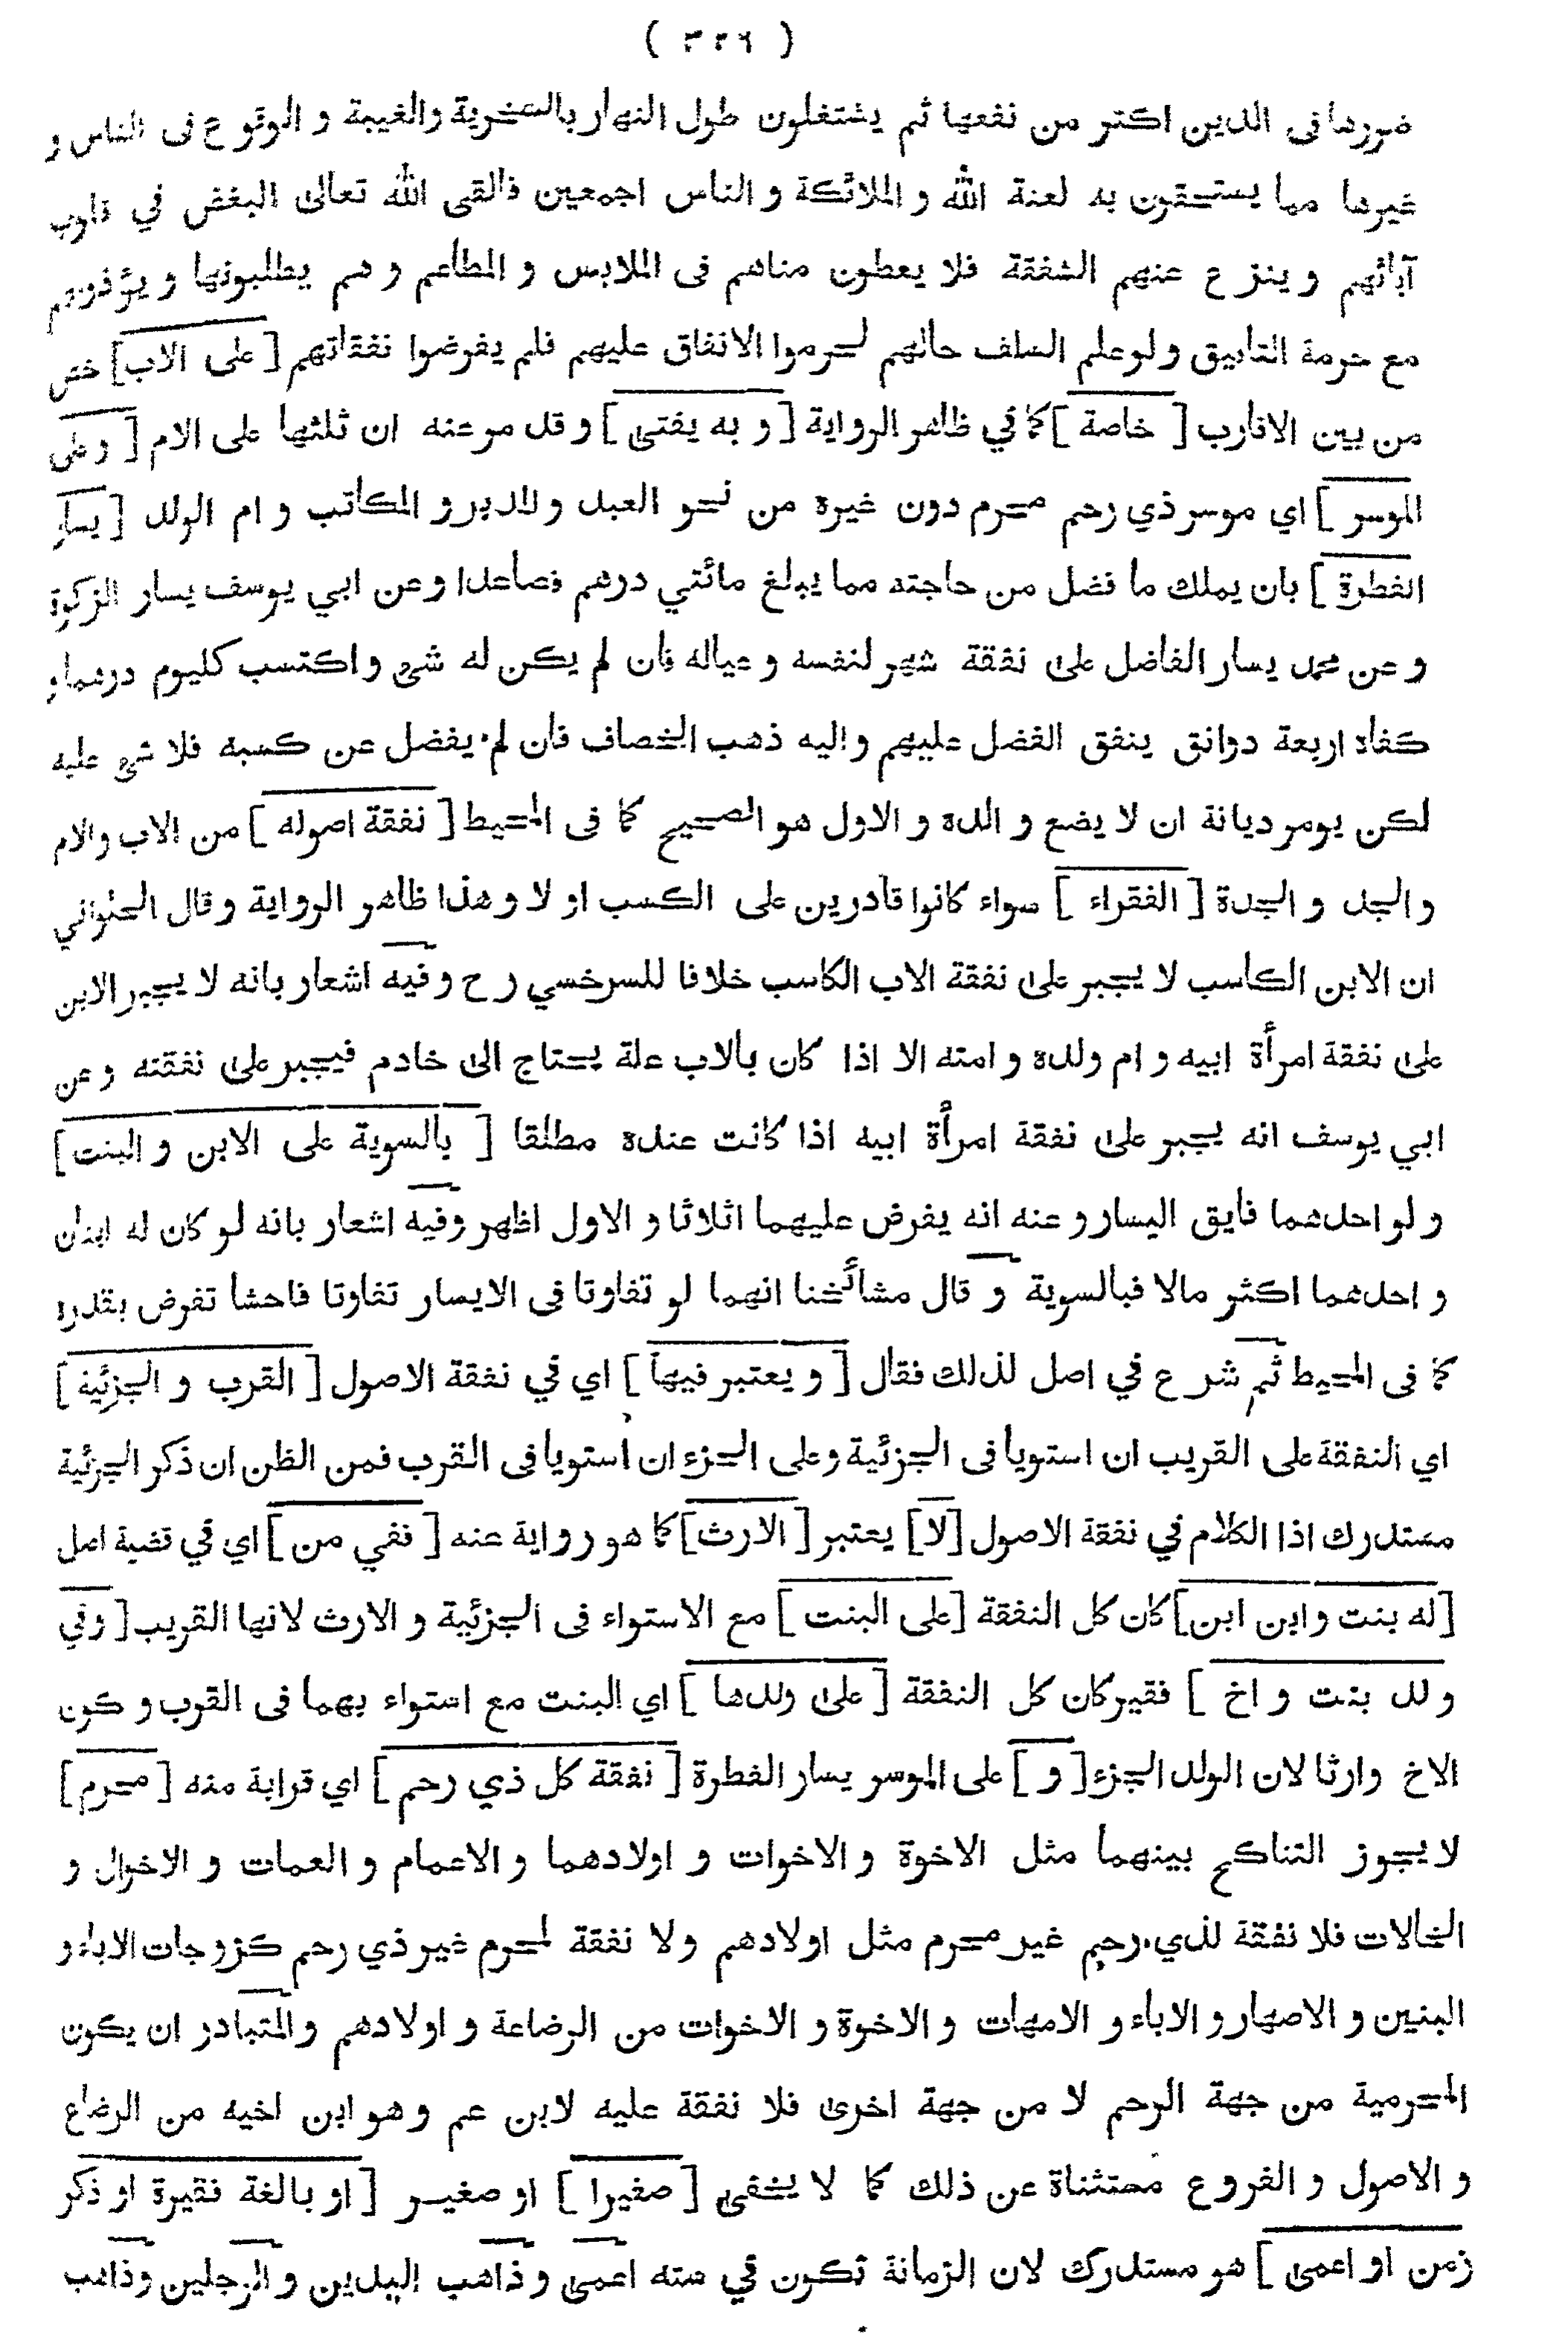 ( ٣٣٦ )
ضررها فى الدين اكثر من نفعها ثم يشتغلون طول النهار بالسخرية والغيبة و الوقوع فى الناس و
غيرها مما يستحقون به لعنة الله و الملائكة و الناس اجمعين فالقى الله تعالى البغض في قلوب
آبائهم وينزع عنهم الشفقة فلا يعطون مناهم فى الملابس و المطاعم وهم يطلبونها ويؤذونهم
مع حرمة التأبيق ولوعلم السلف حالهم لحرموا الانفاق عليهم فلم يفرضوا نفقاتهم [على الاب] خص
من بين الاقارب [خاصة] كما في ظاهر الرواية [و به يفتى] وقد مر عنه ان ثلثها على الام [وعلى
الموسر] اي موسر ذي رحم محرم دون غيره من نحو العبد والمدبر و المكاتب و ام الولد [يسار
الفطرة] بان يملك ما فضل من حاجته مما يبلغ مائتي درهم فصاعدا وعن ابي يوسف يسار الزكوة
وعن محمد يسار الفاضل على نفقة شهر لنفسه وعياله فان لم يكن له شئ واكتسب كليوم درهما و
كفاه اربعة دوانق ينفق الفضل عليهم واليه ذهب الخصاف فان لم يفضل عن كسبه فلا شئ عليه
لكن يومر ديانة ان لا يضع و الده و الاول هو الصحيح كما فى المحيط [نفقة اصوله] من الاب والام
والجد و الجدة [الفقراء] سواء كانوا قادرين على الكسب او لا وهذا ظاهر الرواية وقال الحلواني
ان الابن الكاسب لا يجبر على نفقة الاب الكاسب خلافا للسرخسي رح وفيه اشعار بانه لا يجبر الابن
على نفقة امرأة ابيه و ام ولده و امته الا اذا كان بالاب علة يحتاج الى خادم فيجبر على نفقته وعن
ابي يوسف انه يجبر على نفقة امرأة ابيه اذا كانت عنده مطلقا [بالسوية على الابن و البنت]
و لو احدهما فايق اليسار وعنه انه يفرض عليهما اثلاثا و الاول اظهر وفيه اشعار بانه لو كان له ابنان
و احدهما اكثر مالا فبالسوية و قال مشائخنا انهما لو تفاوتا فى الايسار تفاوتا فاحشا تفرض بقدره
كما فى المحيط ثم شرع في اصل لذلك فقال [و يعتبر فيها] اي في نفقة الاصول [القرب و الجزئية]
اي النفقة على القريب ان استويا فى الجزئية وعلى الجزء ان استويا فى القرب فمن الظن ان ذكر الجزئية
مستدرك اذا الكلام في نفقة الاصول [لا] يعتبر [الارث] كما هو رواية عنه [نفي من] اي في قضية اصل
[له بنت وابن ابن] كان كل النفقة [على البنت] مع الاستواء فى الجزئية و الارث لانها القريب [وفي
ولد بنت و اخ] فقير كان كل النفقة [على ولدها] اي البنت مع استواء بهما فى القرب و كون
الاخ وارثا لان الولد الجزء [و] على الموسر يسار الفطرة [نفقة كل ذي رحم] اي قرابة منه [محرم]
لا يجوز التناكح بينهما مثل الاخوة و الاخوات و اولادهما و الاعمام و العمات و الاخوال و
الخالات فلا نفقة لذي رحم غير محرم مثل اولادهم ولا نفقة لمحرم غير ذي رحم كزوجات الاباء و
البنين و الاصهار و الاباء و الامهات و الاخوة و الاخوات من الرضاعة و اولادهم والمتبادر ان يكون
المحرمية من جهة الرحم لا من جهة اخرى فلا نفقة عليه لابن عم وهو ابن اخيه من الرضاع
و الاصول و الفروع مستثناة عن ذلك كما لا يخفى [صغيرا] او صغيـر [او بالغة فقيرة او ذكر
زمن او اعمى] هو مستدرك لان الزمانة تكون في سته اعمى وذاهب اليدين و الرجلين وذاهب